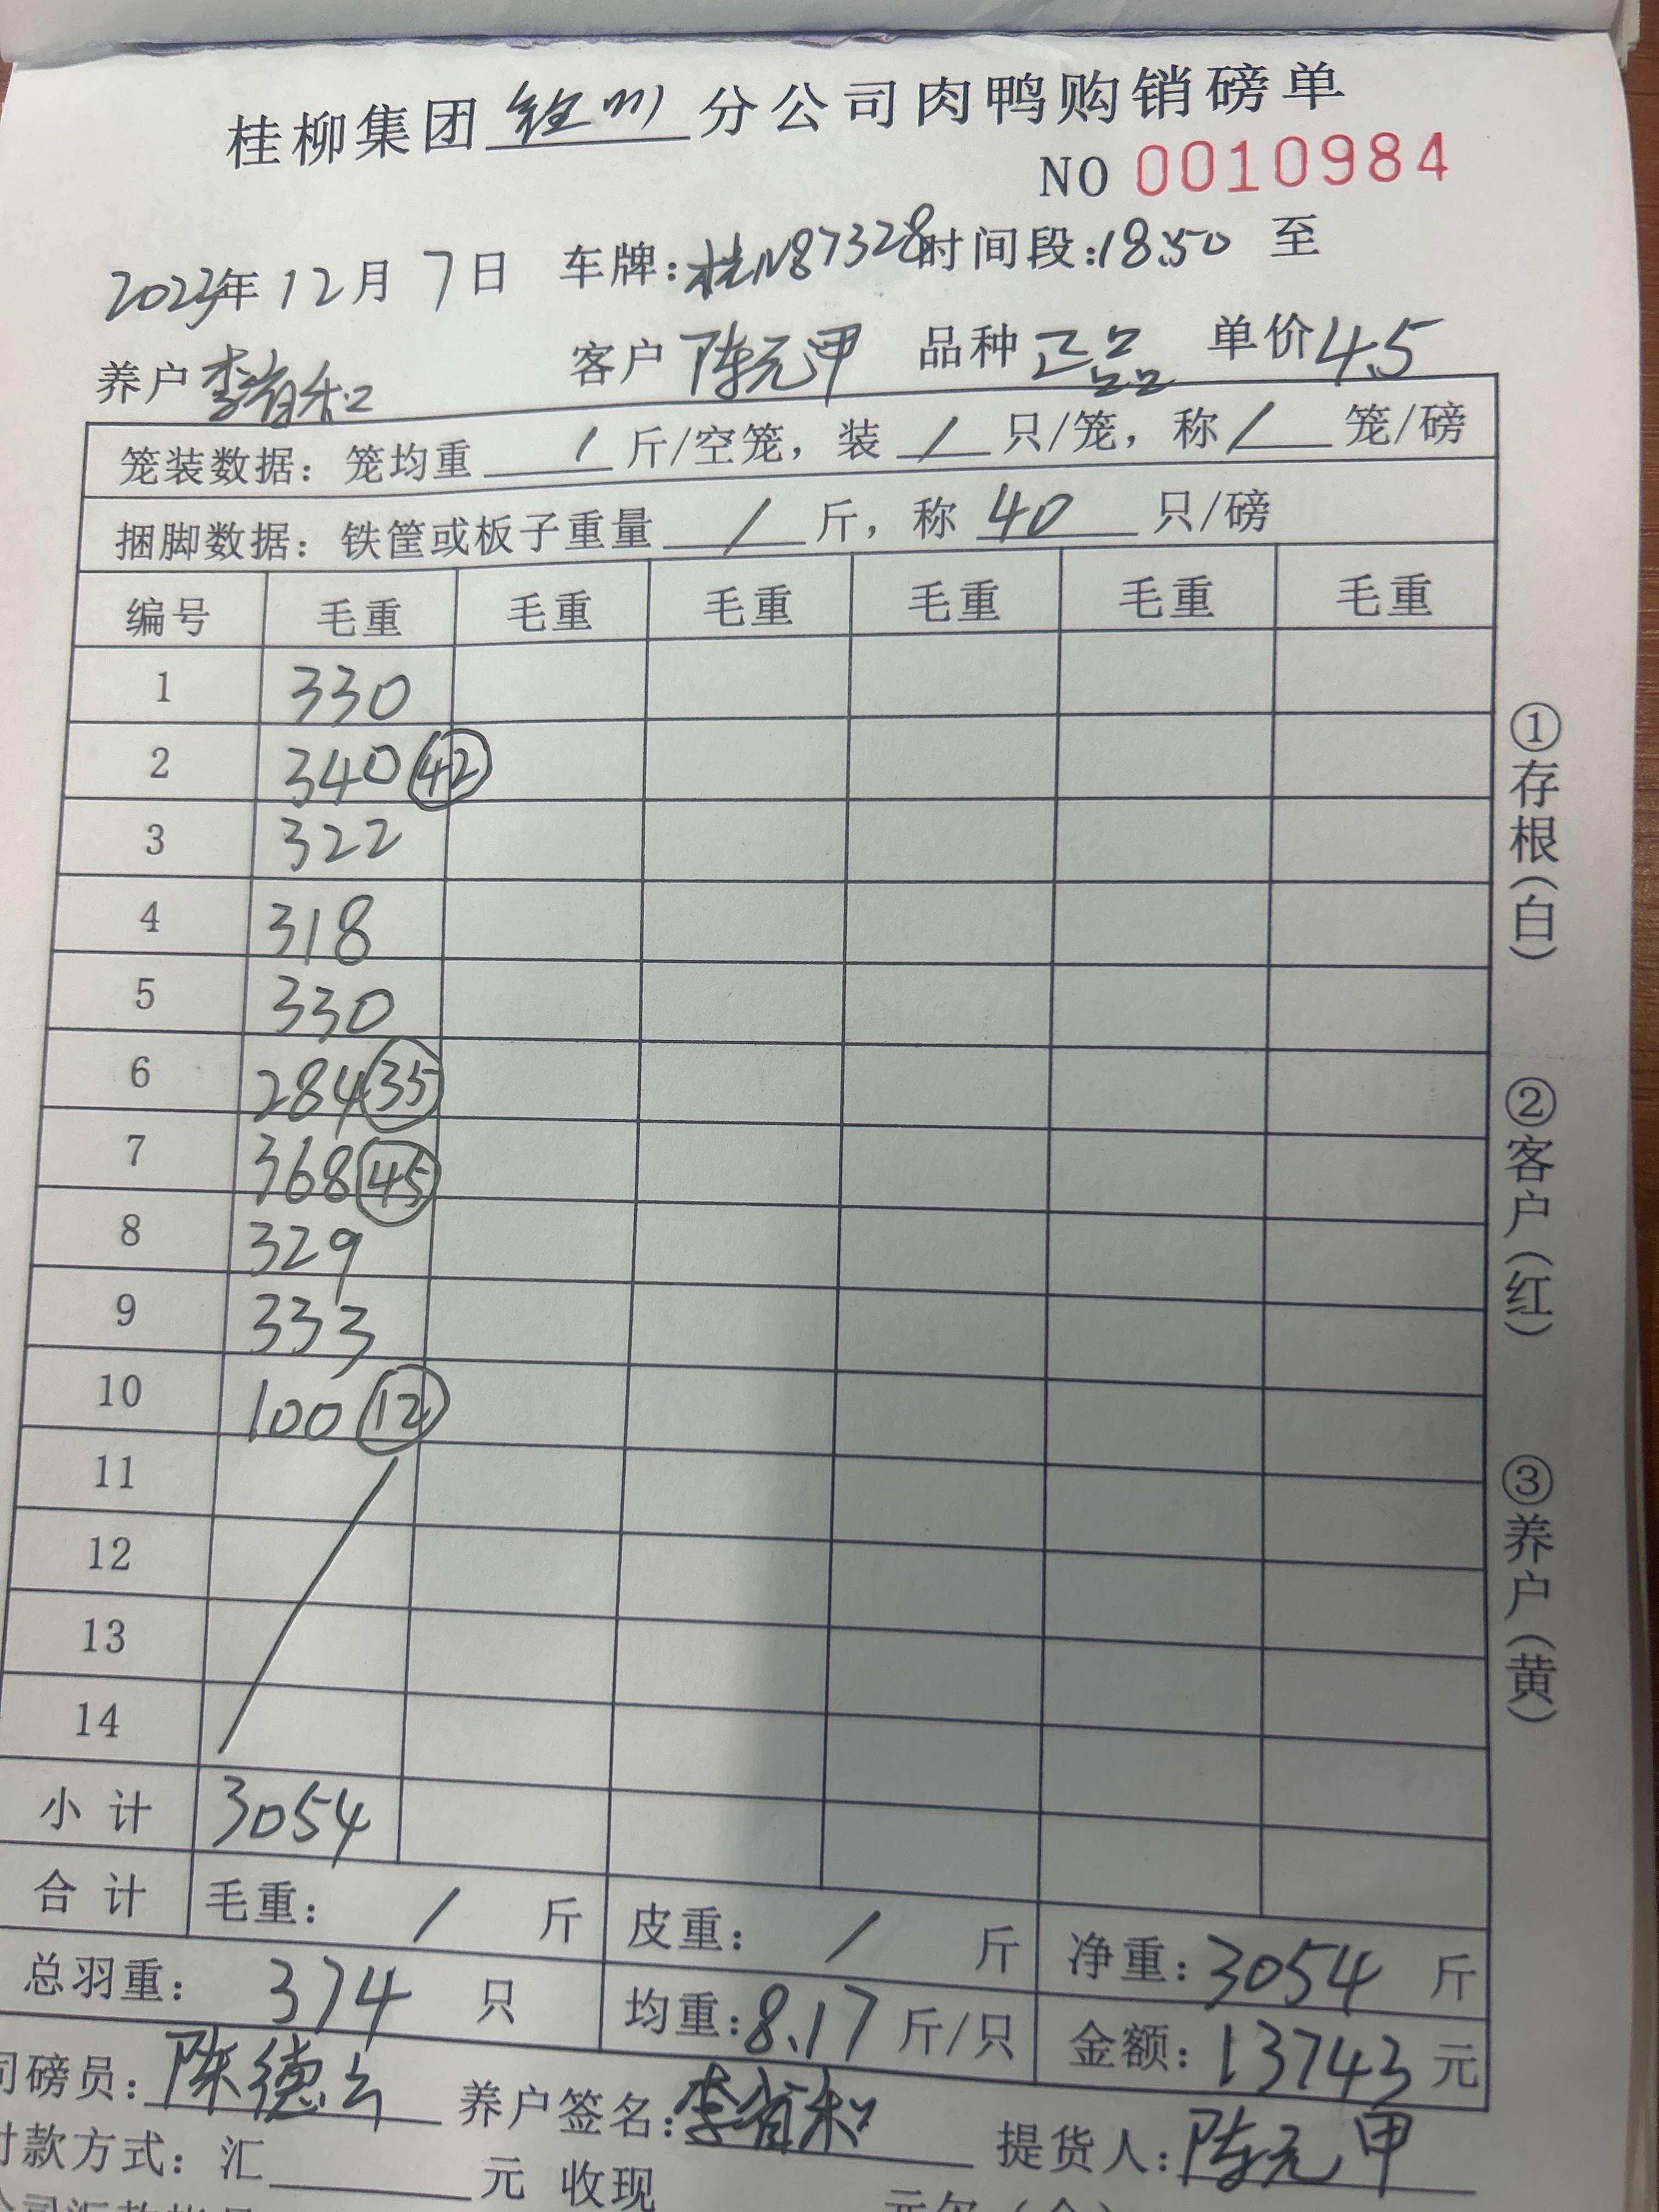 桂柳集团钦州分公司肉鸭购销磅单
NO 0010984
2023年12月7日 车牌:桂N87328 时间段:18:50 至
养户 李有和 客户 陈元甲 品种 正品 单价 4.5
笼装数据: 笼均重 / 斤/空笼, 装 / 只/笼, 称 / 笼/磅
捆脚数据: 铁筐或板子重量 / 斤, 称 40 只/磅
编号 毛重 毛重 毛重 毛重 毛重 毛重
1 330
2 340 42
3 322
4 318
5 330
6 284 35
7 368 45
8 329
9 333
10 100 12
11
12
13
14
小计 3054
合计 毛重: / 斤 皮重: / 斤 净重: 3054 斤
总羽重: 374 只 均重: 8.17 斤/只 金额: 13743 元
司磅员: 陈德云 养户签名: 李有和 提货人: 陈元甲
付款方式: 汇 元 收现
①存根(白) ②客户(红) ③养户(黄)